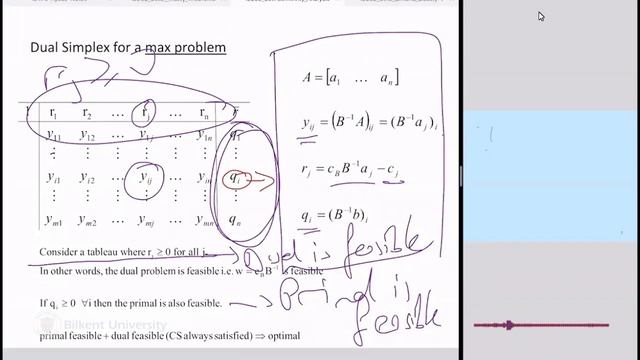 Dual Simplex for a max problem
r₁ r₂ … rⱼ … rₙ
y₁₁ y₁₂ … y₁ⱼ … y₁ₙ q₁
⋮ ⋮ ⋮ ⋮ ⋮
yᵢ₁ yᵢ₂ … yᵢⱼ … yᵢₙ qᵢ
⋮ ⋮ ⋮ ⋮ ⋮
yₘ₁ yₘ₂ … yₘⱼ … yₘₙ qₘ
A = [a₁ … aₙ]
yᵢⱼ = (B⁻¹A)ᵢⱼ = (B⁻¹aⱼ)ᵢ
rⱼ = c_B B⁻¹aⱼ − cⱼ
qᵢ = (B⁻¹b)ᵢ
Consider a tableau where rⱼ ≥ 0 for all j.
Dual is feasible
In other words, the dual problem is feasible i.e. w = c_B B⁻¹ is feasible
If qᵢ ≥ 0 ∀i then the primal is also feasible.
Primal is feasible
Bilkent University
primal feasible + dual feasible (CS always satisfied) ⇒ optimal